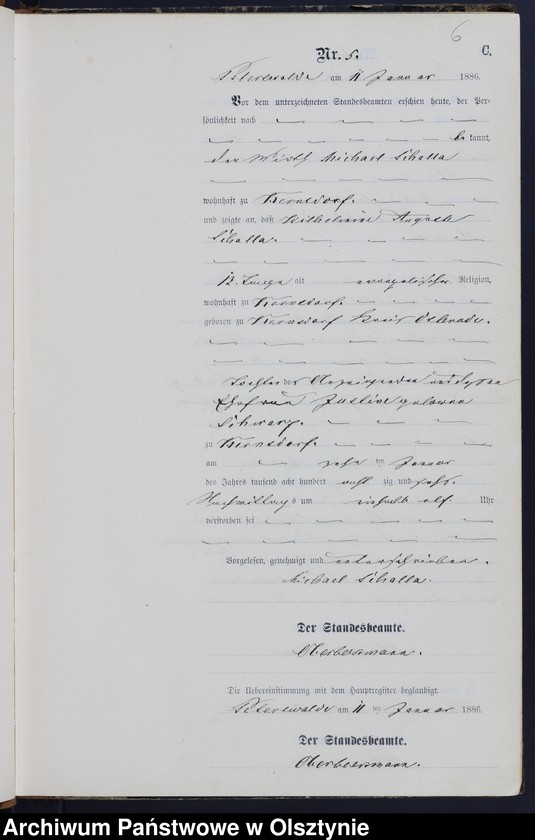 6
C.
Nr. 5.
Peterswalde am 11 Januar 1886.
Vor dem unterzeichneten Standesbeamten erschien heute, der Per-
sönlichkeit nach
be kannt,
der Wirth Michael Schalla
wohnhaft zu Kernsdorf.
und zeigte an, daß Wilhelmine Auguste
Schalla.
alt evangelischer Religion,
wohnhaft zu Kernsdorf.
geboren zu Kernsdorf Kreis Osterode.
Tochter des Anzeigenden und dessen
Ehefrau Justine geborene
Schwarz.
zu Kernsdorf.
am zehn ten Januar
des Jahres tausend acht hundert acht zig und sechs.
Nachmittags um elf Uhr
verstorben sei
Vorgelesen, genehmigt und unterschrieben.
Michael Schalla.
Der Standesbeamte.
Die Uebereinstimmung mit dem Hauptregister beglaubigt.
Peterswalde am 11 ten Januar 1886.
Der Standesbeamte.
Archiwum Państwowe w Olsztynie